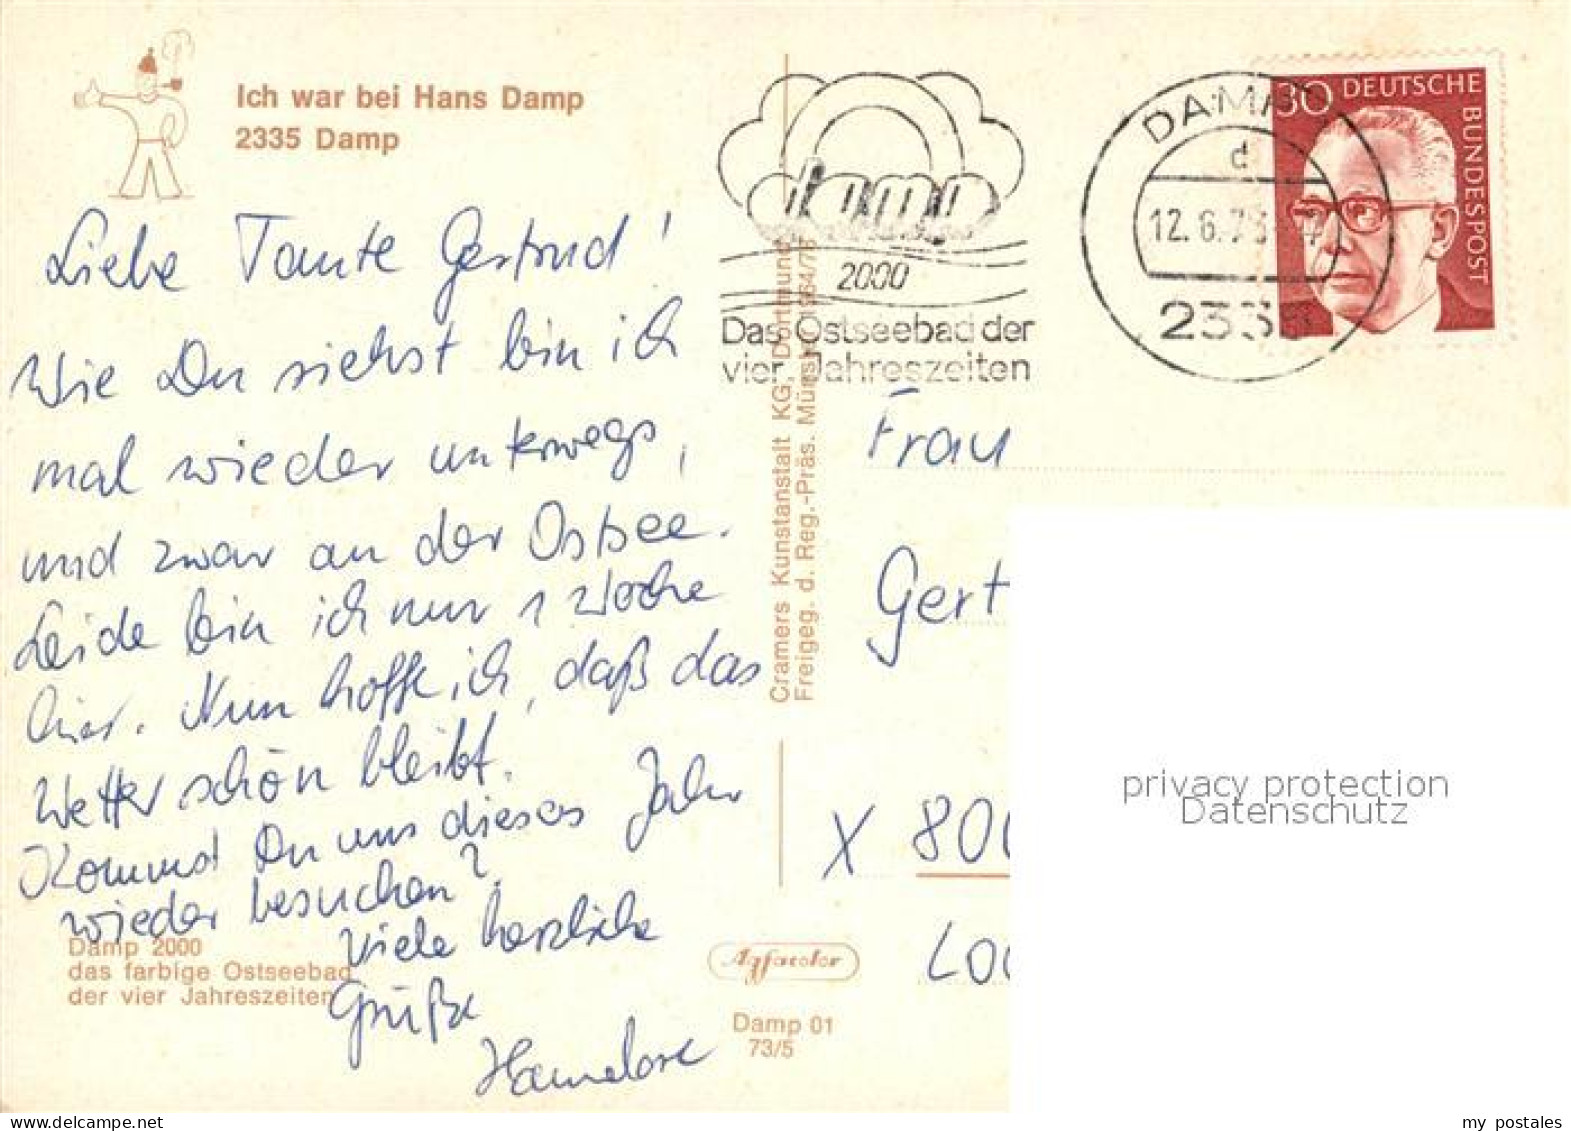 Ich war bei Hans Damp
2335 Damp
Liebe Tante Gertrud!
Wie Du siehst bin ich
mal wieder unterwegs,
und zwar an der Ostsee.
Leider bin ich nur 1 Woche
hier. Nun hoffe ich, daß das
Wetter schön bleibt.
Kommst Du uns dieses Jahr
wieder besuchen?
Viele herzliche
Grüße
Hannelore
Damp 2000
das farbige Ostseebad
der vier Jahreszeiten
Cramers Kunstanstalt KG, Dortmund
Freigeg. d. Reg.-Präs. Münster
Agfacolor
Damp 01
73/5
damp
2000
Das Ostseebad der
vier Jahreszeiten
DAMP
d
12.6.73
2335
30 DEUTSCHE
BUNDESPOST
Frau
Gert
X 800
privacy protection
Datenschutz
my postales